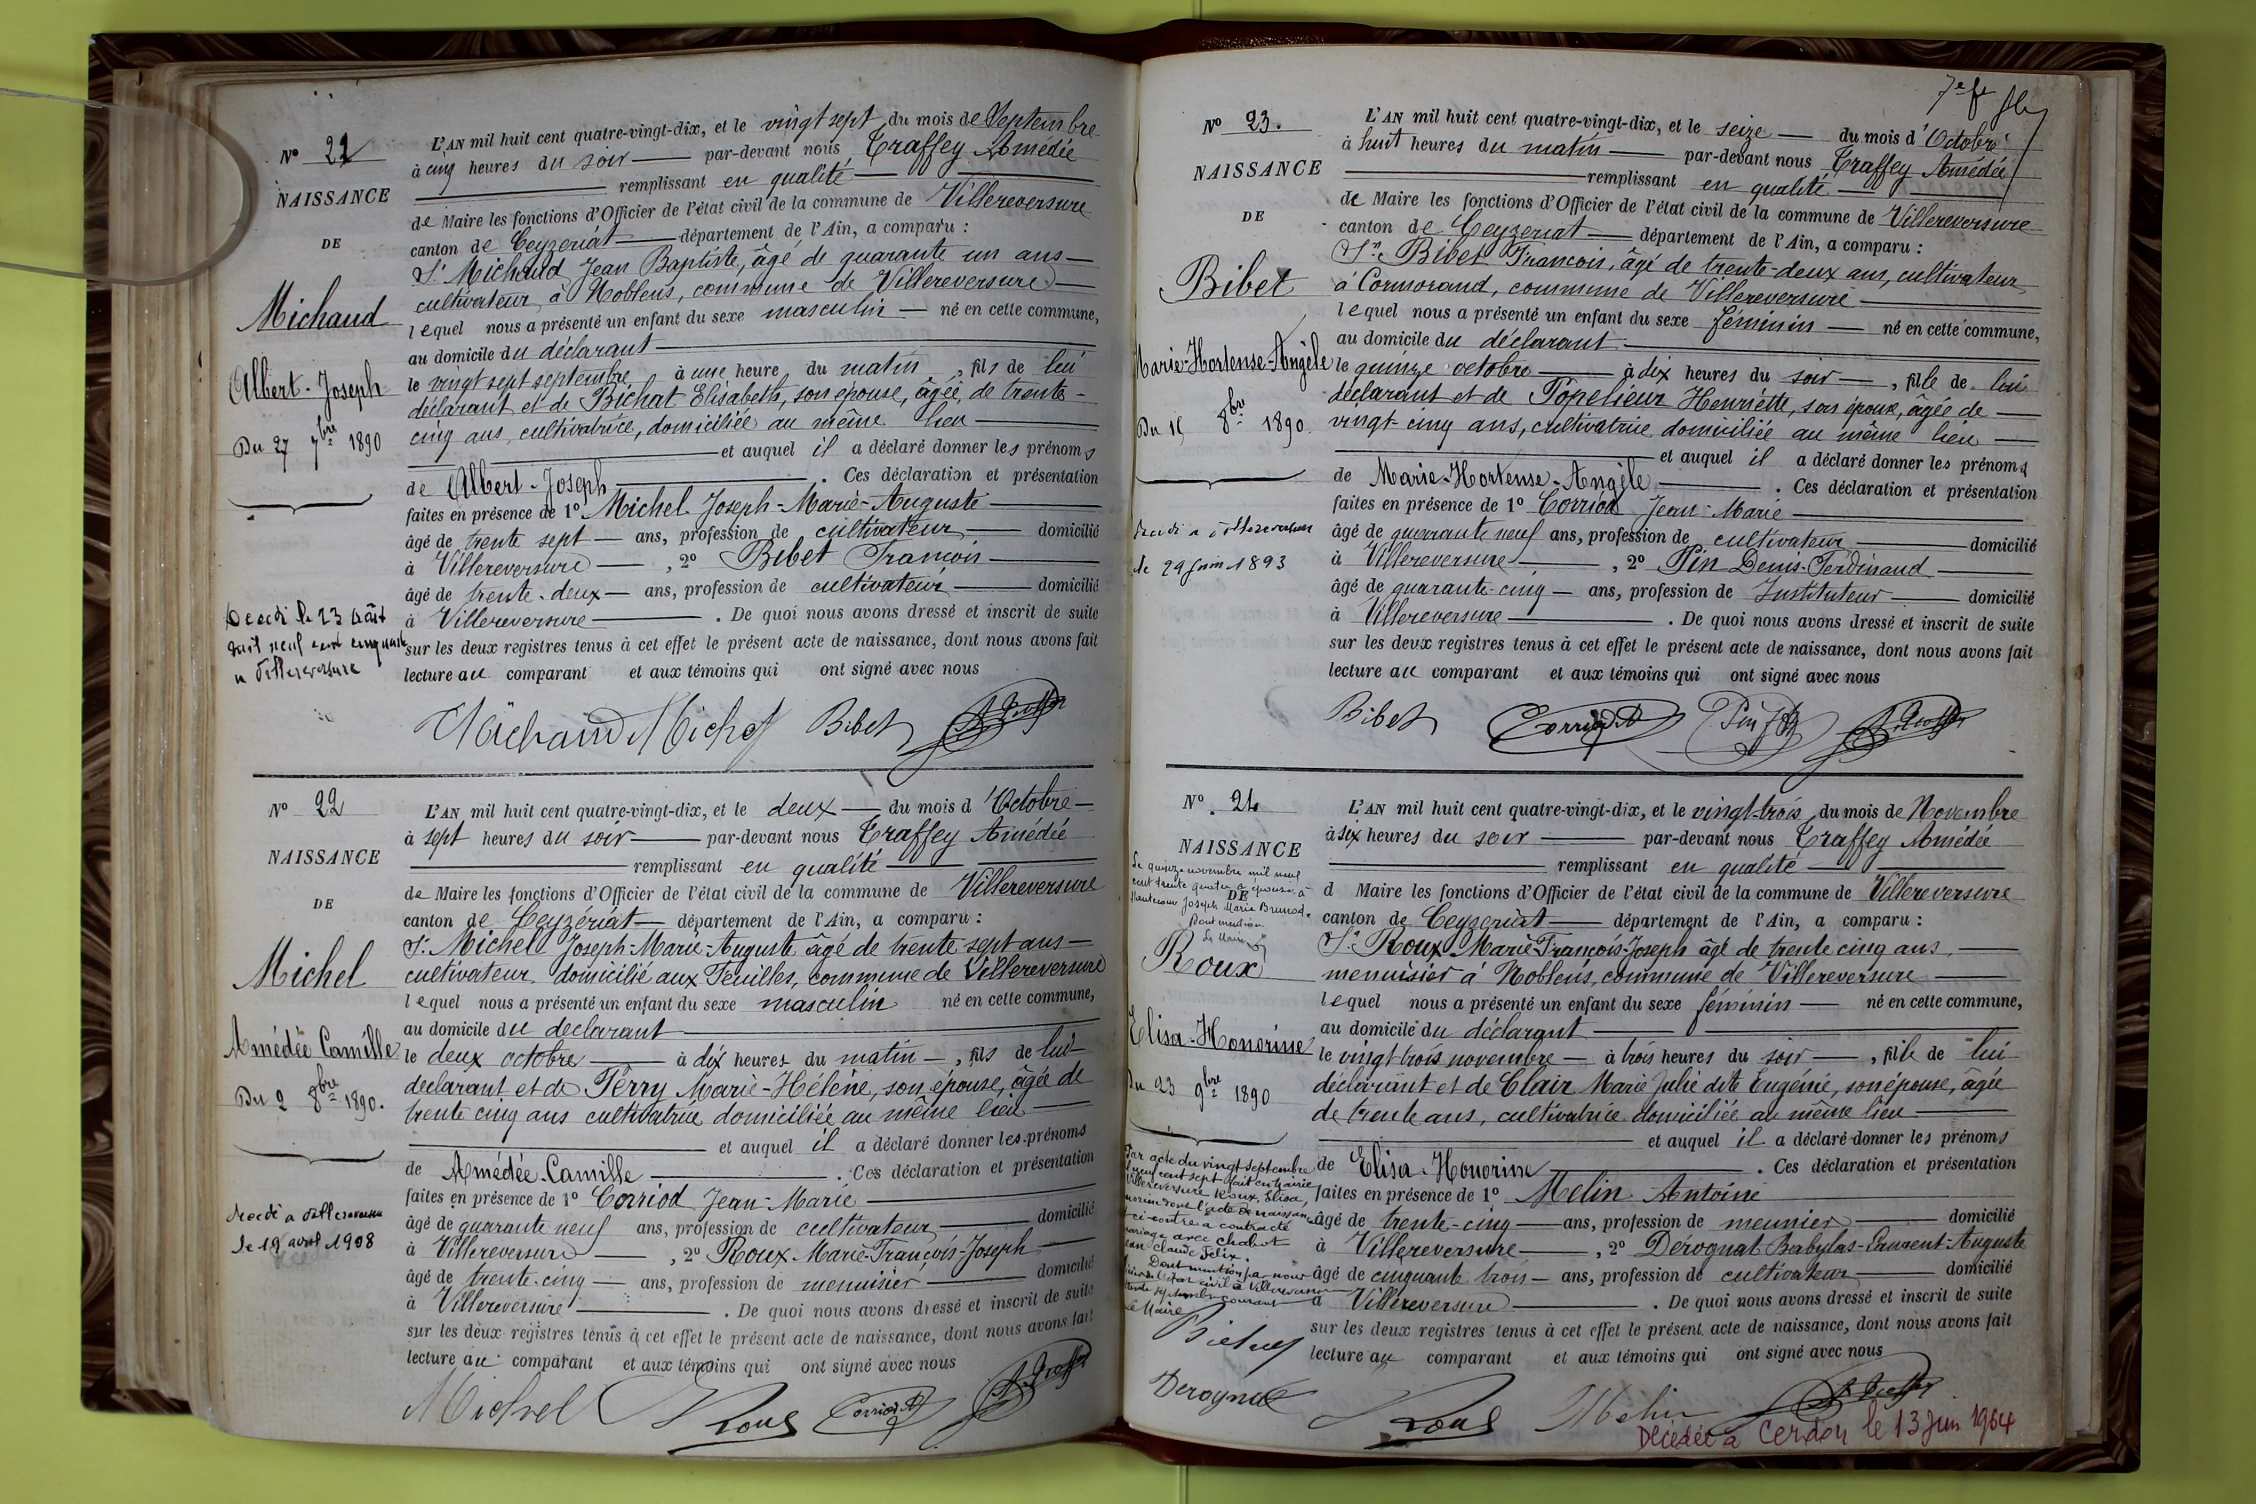 N° 21
NAISSANCE
DE
Michaud
Albert-Joseph
Du 27 7bre 1890
Décédé le 23 août
mil neuf cent cinquante
à Villereversure
L'AN mil huit cent quatre-vingt-dix, et le vingt sept du mois de Septembre
à cinq heures du soir par-devant nous Traffey Amédée
remplissant en qualité
de Maire les fonctions d'Officier de l'état civil de la commune de Villereversure
canton de Ceyzeriat département de l'Ain, a comparu :
Sr Michaud Jean Baptiste, âgé de quarante un ans
cultivateur, à Noblens, commune de Villereversure
lequel nous a présenté un enfant du sexe masculin né en cette commune,
au domicile du déclarant
le vingt sept septembre à une heure du matin, fils de lui
déclarant et de Bichat Elisabeth, son épouse, âgée de trente-
cinq ans, cultivatrice, domiciliée au même lieu
et auquel il a déclaré donner les prénoms
de Albert-Joseph. Ces déclaration et présentation
faites en présence de 1° Michel Joseph-Marie-Auguste
âgé de trente sept ans, profession de cultivateur domicilié
à Villereversure, 2° Bibet François
âgé de trente-deux ans, profession de cultivateur domicilié
à Villereversure. De quoi nous avons dressé et inscrit de suite
sur les deux registres tenus à cet effet le présent acte de naissance, dont nous avons fait
lecture au comparant et aux témoins qui ont signé avec nous
Michaud Michel Bibet A. Traffey
N° 22
NAISSANCE
DE
Michel
Amédée Camille
Du 2 8bre 1890.
décédé à Villereversure
le 19 avril 1908
L'AN mil huit cent quatre-vingt-dix, et le deux du mois d'Octobre
à sept heures du soir par-devant nous Traffey Amédée
remplissant en qualité
de Maire les fonctions d'Officier de l'état civil de la commune de Villereversure
canton de Ceyzériat département de l'Ain, a comparu :
Sr Michel Joseph-Marie-Auguste âgé de trente-sept ans
cultivateur, domicilié aux Feuilles, commune de Villereversure
lequel nous a présenté un enfant du sexe masculin né en cette commune,
au domicile du declarant
le deux octobre à dix heures du matin, fils de lui
declarant et de Perry Marie-Hélène, son épouse, âgée de
trente cinq ans cultivatrice domiciliée au même lieu
et auquel il a déclaré donner les prénoms
de Amédée-Camille. Ces déclaration et présentation
faites en présence de 1° Corriod Jean-Marie
âgé de quarante neuf ans, profession de cultivateur domicilié
à Villereversure, 2° Roux Marie-François-Joseph
âgé de trente-cinq ans, profession de menuisier domicilié
à Villereversure. De quoi nous avons dressé et inscrit de suite
sur les deux registres tenus à cet effet le présent acte de naissance, dont nous avons fait
lecture au comparant et aux témoins qui ont signé avec nous
Michel Roux Corriod A. Traffey
7e f
N° 23.
NAISSANCE
DE
Bibet
Marie-Hortense-Angèle
Du 15 8bre 1890.
décédé à Villereversure
le 29 juin 1893
L'AN mil huit cent quatre-vingt-dix, et le seize du mois d'Octobre
à huit heures du matin par-devant nous Traffey Amédée
remplissant en qualité
de Maire les fonctions d'Officier de l'état civil de la commune de Villereversure
canton de Ceyzeriat département de l'Ain, a comparu :
Sr Bibet François, âgé de trente-deux ans, cultivateur
à Cormorand, commune de Villereversure
lequel nous a présenté un enfant du sexe féminin né en cette commune,
au domicile du déclarant
le quinze octobre à dix heures du soir, fille de lui
déclarant et de Popelieur Henriette, son épouse, âgée de
vingt-cinq ans, cultivatrice, domiciliée au même lieu
et auquel il a déclaré donner les prénoms
de Marie-Hortense-Angèle. Ces déclaration et présentation
faites en présence de 1° Corriod Jean-Marie
âgé de quarante neuf ans, profession de cultivateur domicilié
à Villereversure, 2° Pin Denis-Ferdinand
âgé de quarante-cinq ans, profession de Instituteur domicilié
à Villereversure. De quoi nous avons dressé et inscrit de suite
sur les deux registres tenus à cet effet le présent acte de naissance, dont nous avons fait
lecture au comparant et aux témoins qui ont signé avec nous
Bibet Corriod Pin A. Traffey
N° 24
NAISSANCE
Le quinze novembre mil neuf
cent trente quatre a épousé à
DE
Joseph Marie Brunod.
Dont mention
Le Maire
Roux
Elisa-Honorine
Du 23 9bre 1890
Par acte du vingt septembre
neuf cent sept fait en mairie
Villereversure Roux, Elisa,
dont l'acte de naissance
ci-contre a contracté
mariage avec Chabot
Jean Claude Félix.
Dont mention par nous
officier de l'état civil à Villereversure
septembre courant
Le Maire
L'AN mil huit cent quatre-vingt-dix, et le vingt-trois du mois de Novembre
à six heures du soir par-devant nous Traffey Amédée
remplissant en qualité
d Maire les fonctions d'Officier de l'état civil de la commune de Villereversure
canton de Ceyzeriat département de l'Ain, a comparu :
Sr Roux Marie-François-Joseph âgé de trente cinq ans
menuisier à Noblens, commune de Villereversure
lequel nous a présenté un enfant du sexe féminin né en cette commune,
au domicile du déclarant
le vingt trois novembre à trois heures du soir, fille de lui
déclarant et de Clair Marie Julie dite Eugénie, son épouse, âgée
de trente ans, cultivatrice domiciliée au même lieu
et auquel il a déclaré donner les prénoms
de Elisa-Honorine. Ces déclaration et présentation
faites en présence de 1° Melin Antoine
âgé de trente-cinq ans, profession de meunier domicilié
à Villereversure, 2° Dérognat Babylas-Laurent-Auguste
âgé de cinquante trois ans, profession de cultivateur domicilié
à Villereversure. De quoi nous avons dressé et inscrit de suite
sur les deux registres tenus à cet effet le présent acte de naissance, dont nous avons fait
lecture au comparant et aux témoins qui ont signé avec nous
Derognat Roux Melin A. Traffey
Décédée à Cerdon le 13 Juin 1964